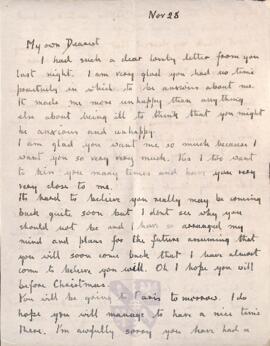 Nov 28
My own Dearest
I had such a dear lovely letter from you
last night. I am very glad you had no time
positively in which to be anxious about me.
It made me more unhappy than anything
else about being ill to think that you might
be anxious and unhappy.
I am glad you want me so much because I
want you so very very much. Yes I too want
to kiss you many times and have you very
very close to me.
Its hard to believe you really may be coming
back quite soon but I dont see why you
should not be and I have so arranged my
mind and plans for the future assuming that
you will soon come back that I have almost
come to believe you will. Oh I hope you will
before Christmas.
You will be going to Paris to morrow. I do
hope you will manage to have a nice time
there. I'm awfully sorry you have had a